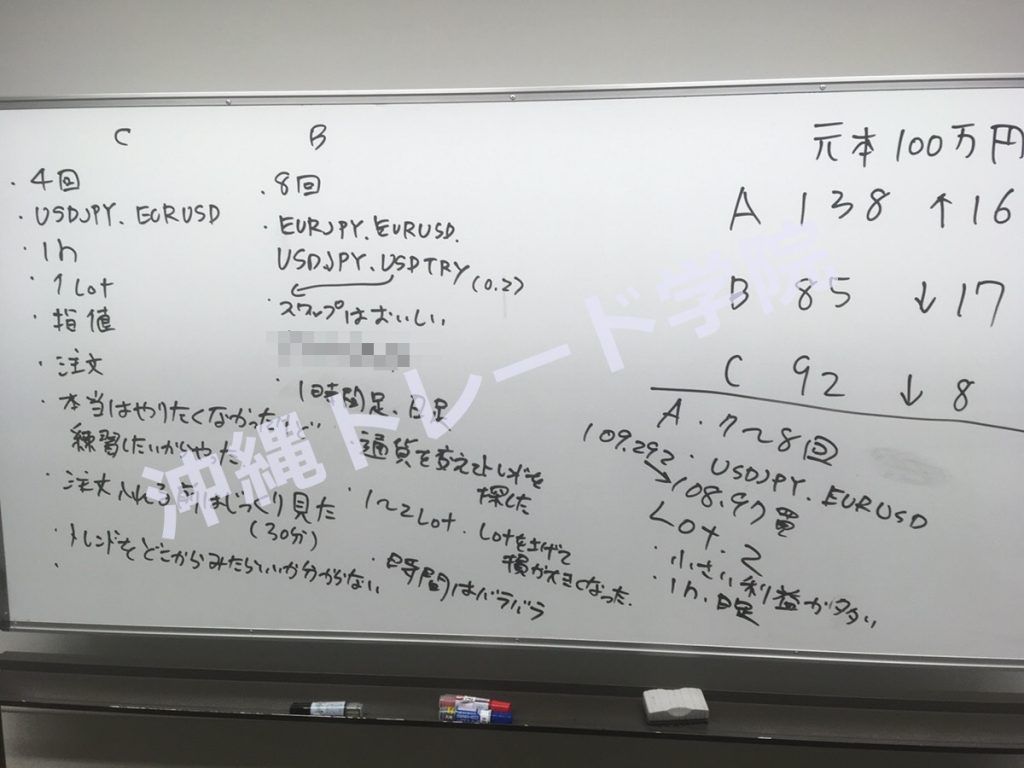 C
・4回
・USDJPY. EURUSD
・1h
・1Lot
・指値
・注文
・本当はやりたくなかったけど
練習したいからやった
・注文入れる前はじっくり見た
(30分)
・トレンドをどこからみたらいいか分からない
・
B
・8回
・EURJPY. EURUSD.
USDJPY. USDTRY (0.2)
・スワップはおいしい
・1時間足、日足
・通貨を変えてトレンドを
探した
・1〜2Lot. Lotを上げて
損が大きくなった.
・時間はバラバラ
元本100万円
A 138 ↑16
B 85 ↓17
C 92 ↓8
A・7〜8回
・USDJPY. EURUSD
109.292
→108.97買
Lot. 2
・小さい利益が多い
・1h. 日足
沖縄トレード学院